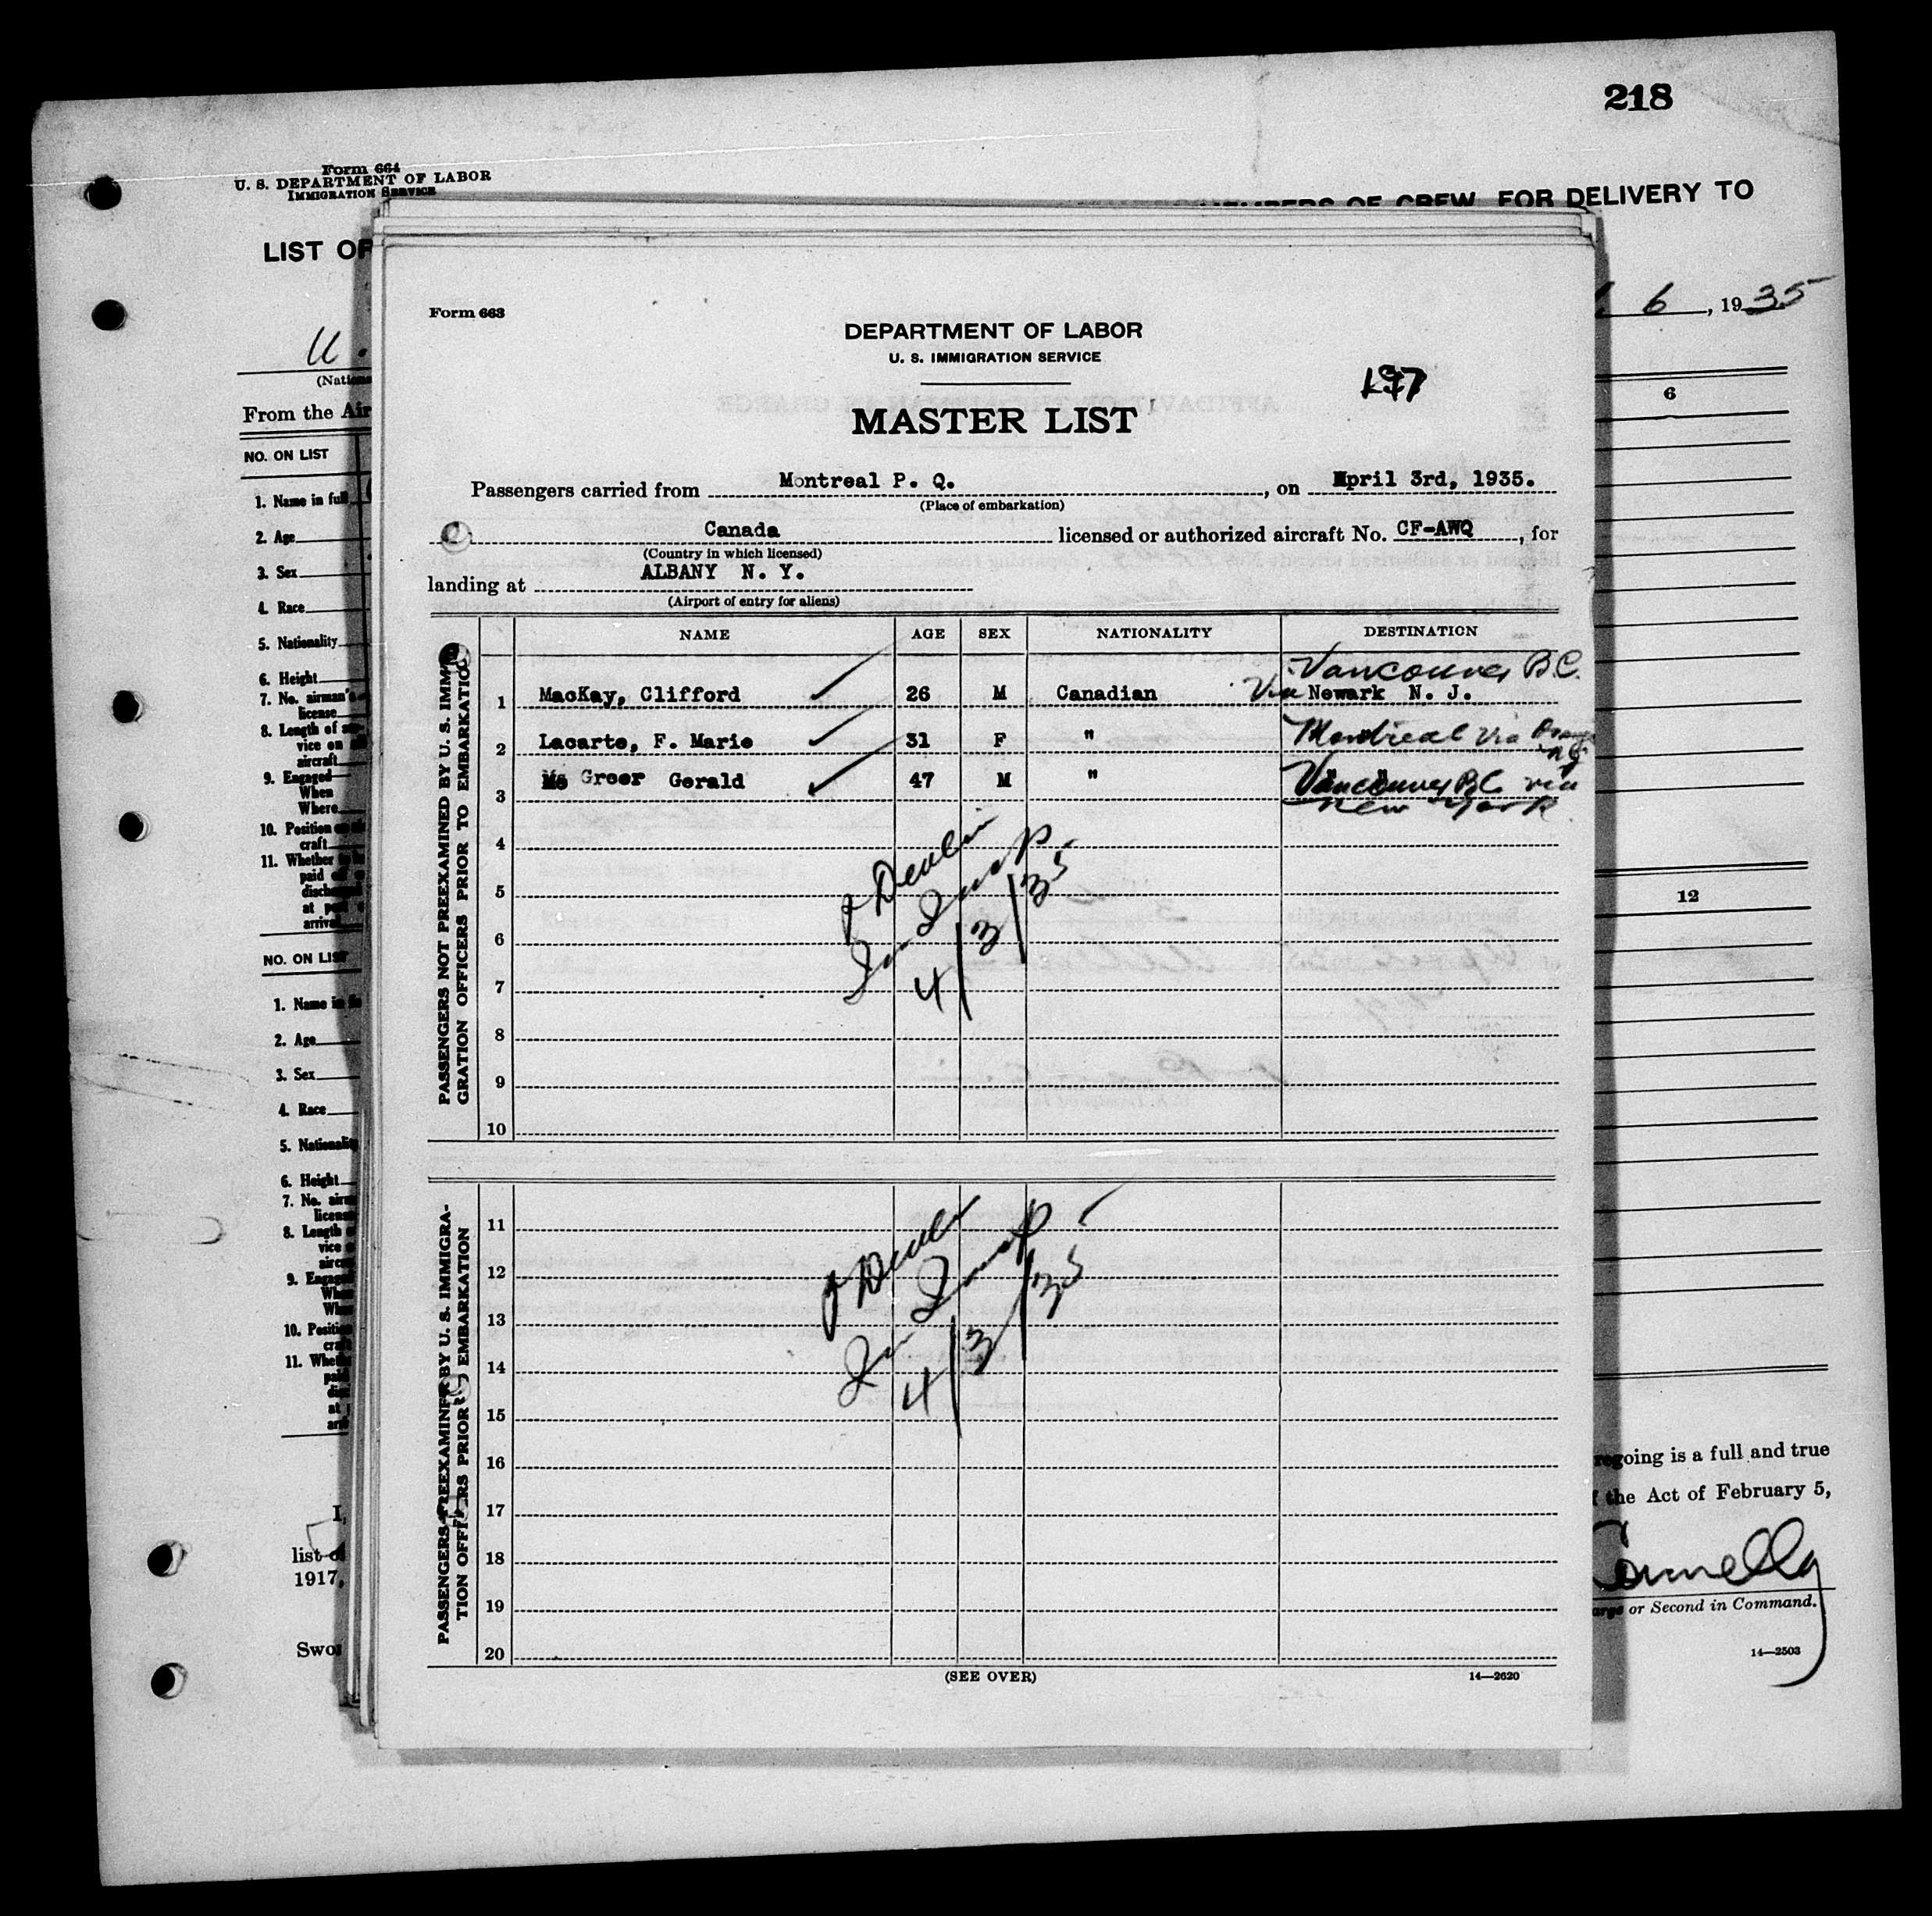 218
Form 664
U. S. DEPARTMENT OF LABOR
IMMIGRATION SERVICE
MEMBERS OF CREW, FOR DELIVERY TO
LIST OF
6, 1935
U.
From the Air
6
NO. ON LIST
1. Name in full
2. Age
3. Sex
4. Race
5. Nationality
6. Height
7. No. airman's
license
8. Length of
vice on
aircraft
9. Engaged
When
Where
10. Position
craft
11. Whether
paid
at
arrival
12
NO. ON LIST
1. Name in
2. Age
3. Sex
4. Race
5. Nationality
6. Height
7. No.
8. Length
vice
9. Engaged
10. Position
11.
at
I,
list
1917,
Form 663
DEPARTMENT OF LABOR
U. S. IMMIGRATION SERVICE
MASTER LIST
Passengers carried from Montreal P. Q., on April 3rd, 1935.
(Place of embarkation)
Canada licensed or authorized aircraft No. CF-AWQ, for
(Country in which licensed)
landing at ALBANY N. Y.
(Airport of entry for aliens)
NAME AGE SEX NATIONALITY DESTINATION
PASSENGERS NOT PREEXAMINED BY U. S. IMMI-
GRATION OFFICERS PRIOR TO EMBARKATION
Vancouver B.C.
1 MacKay, Clifford 26 M Canadian Via Newark N. J.
2 Lacarte, F. Marie 31 F " Montreal via
3 Greer Gerald 47 M " Vancouver BC via
New York
4
5
6
7
8
9
10
J Devlin
Imm Insp
4/3/35
PASSENGERS PREEXAMINED BY U. S. IMMIGRA-
TION OFFICERS PRIOR TO EMBARKATION
11
12
13
14
15
16
17
18
19
20
J Devlin
Imm Insp
4/3/35
(SEE OVER)
14—2620
going is a full and true
the Act of February 5,
Connelly
or Second in Command.
14—2503